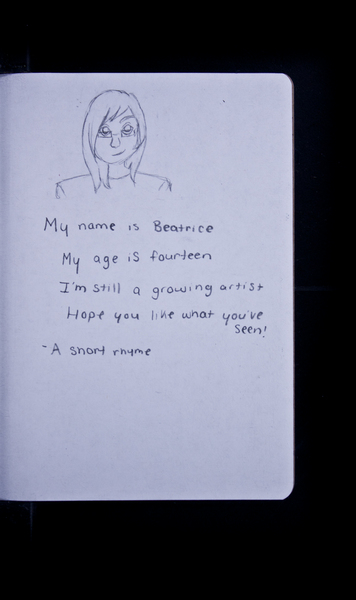 My name is Beatrice
My age is fourteen
I'm still a growing artist
Hope you like what you've
seen!
-A short rhyme